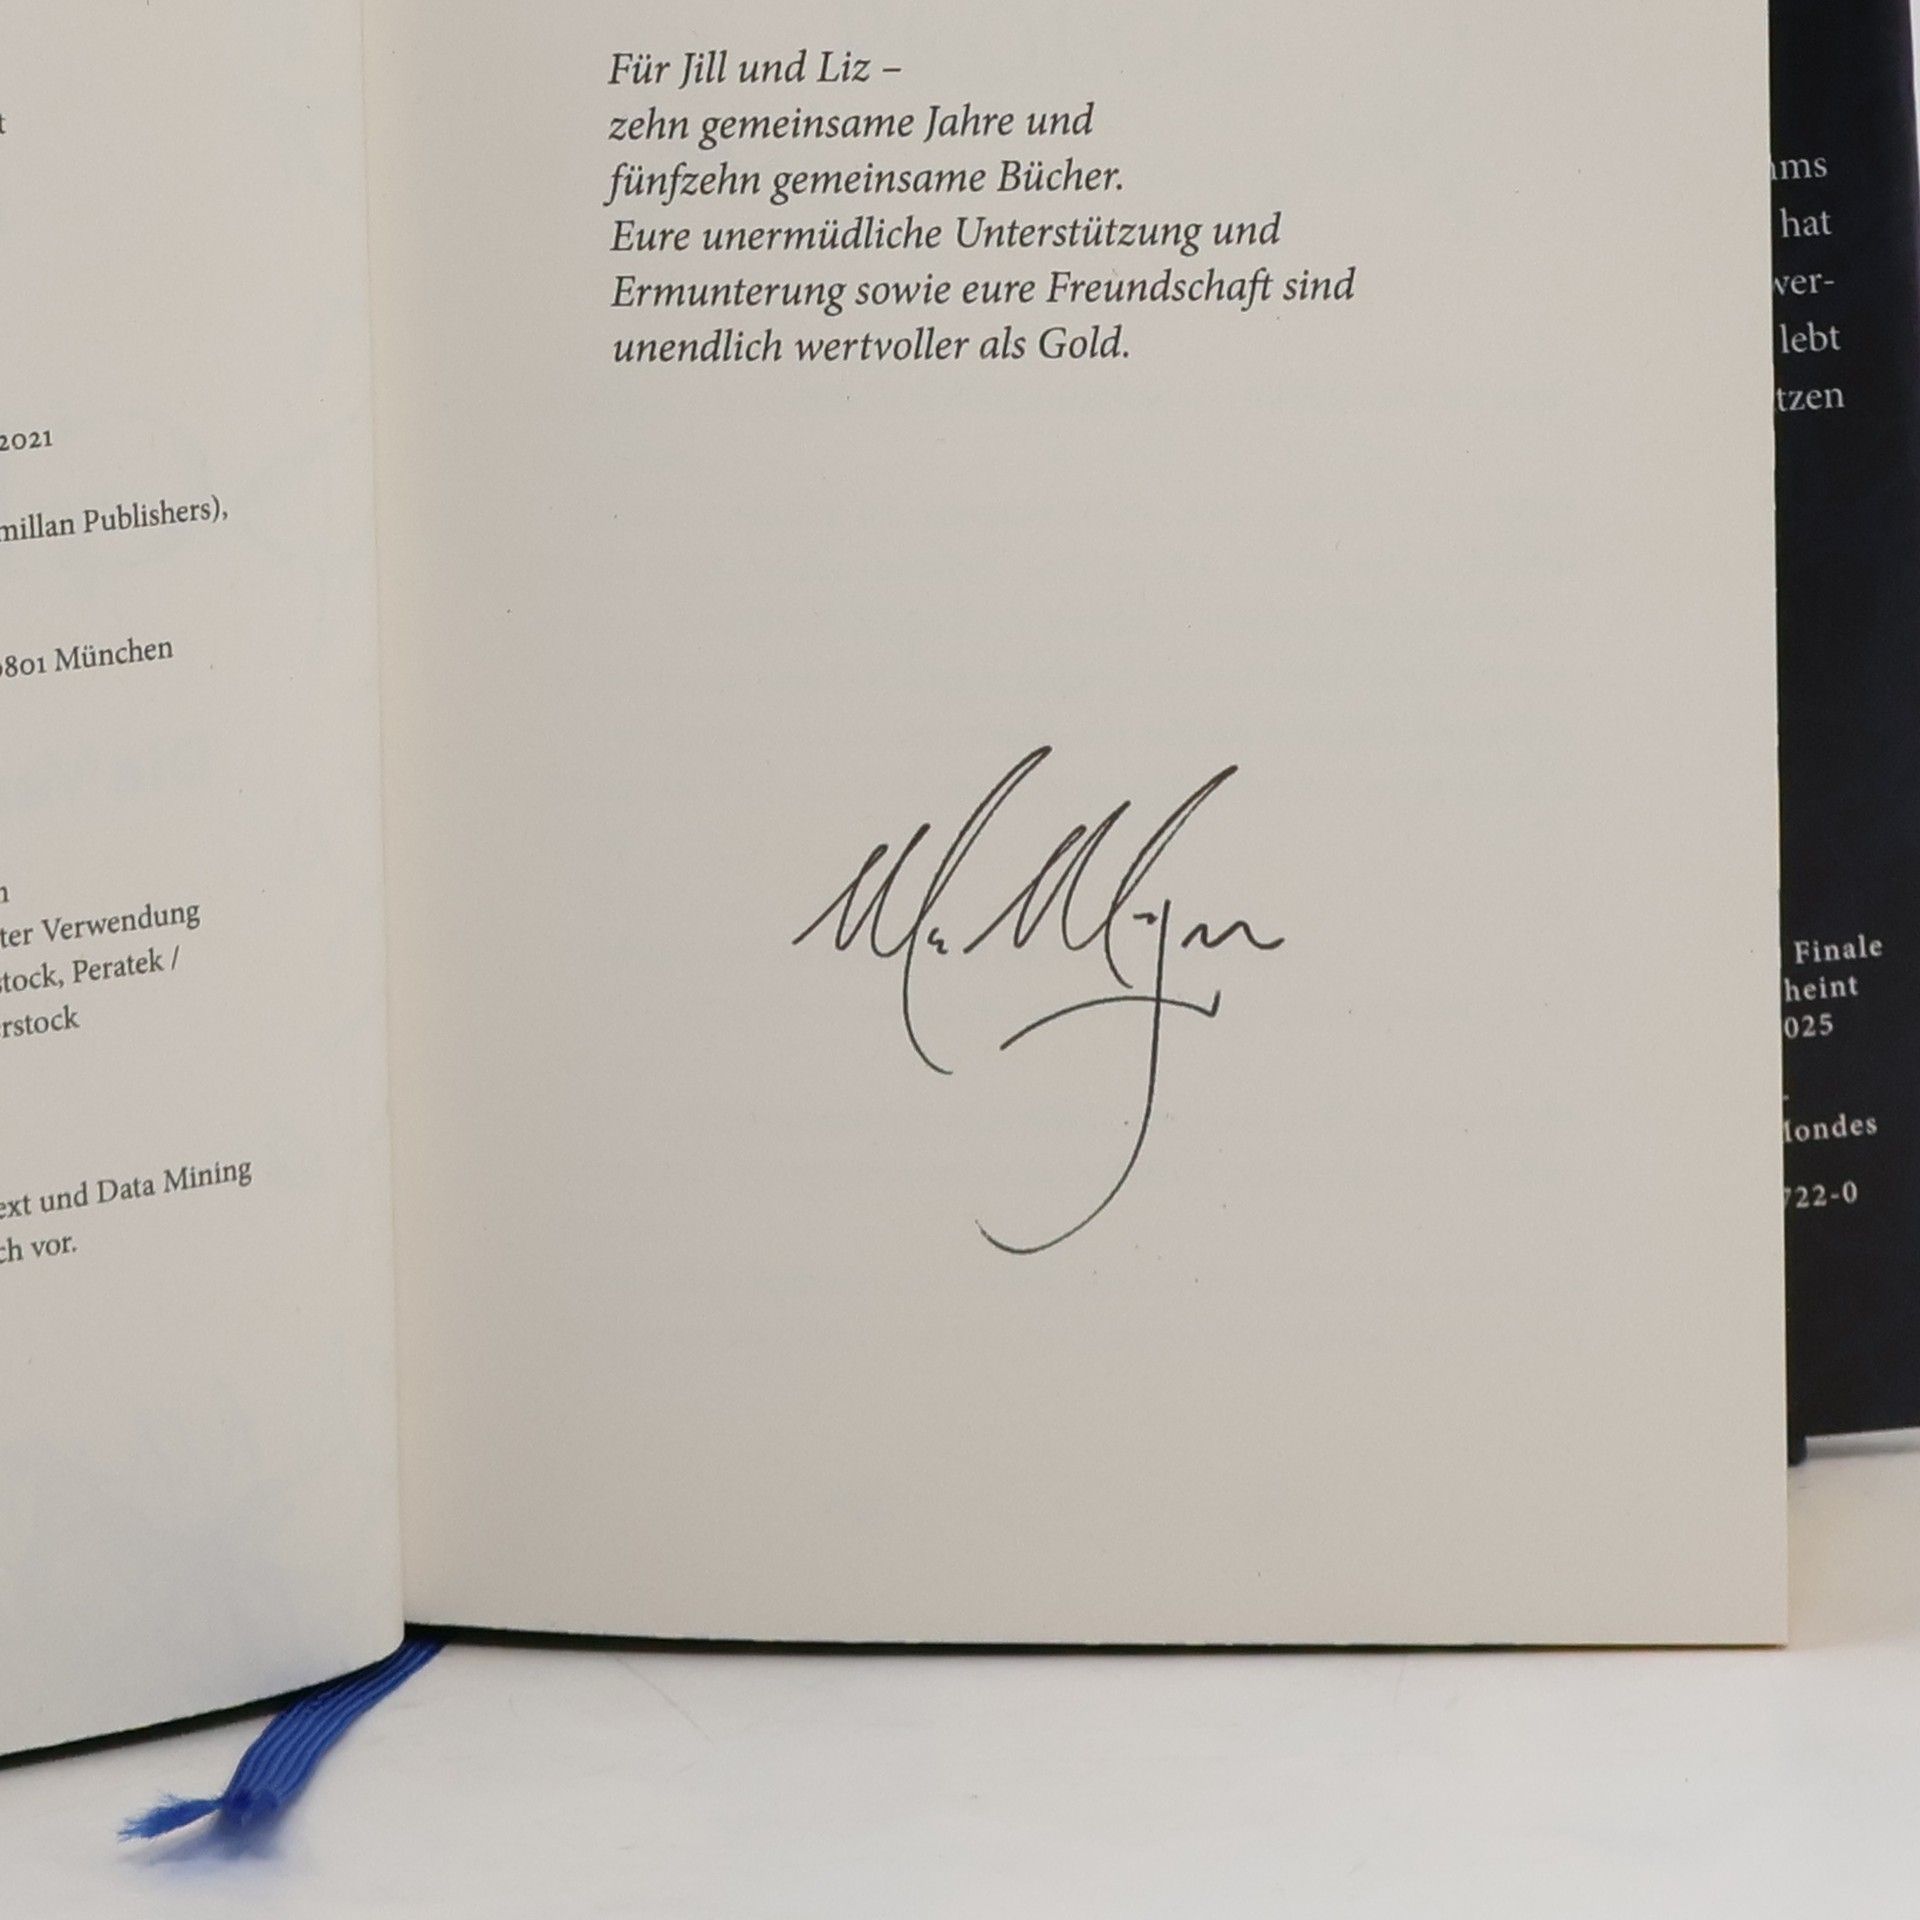 t
2021
millan Publishers),
9801 München
n
ter Verwendung
stock, Peratek /
erstock
ext und Data Mining
ch vor.
Für Jill und Liz –
zehn gemeinsame Jahre und
fünfzehn gemeinsame Bücher.
Eure unermüdliche Unterstützung und
Ermunterung sowie eure Freundschaft sind
unendlich wertvoller als Gold.
ms
hat
ver-
lebt
tzen
Finale
heint
025
-
londes
722-0